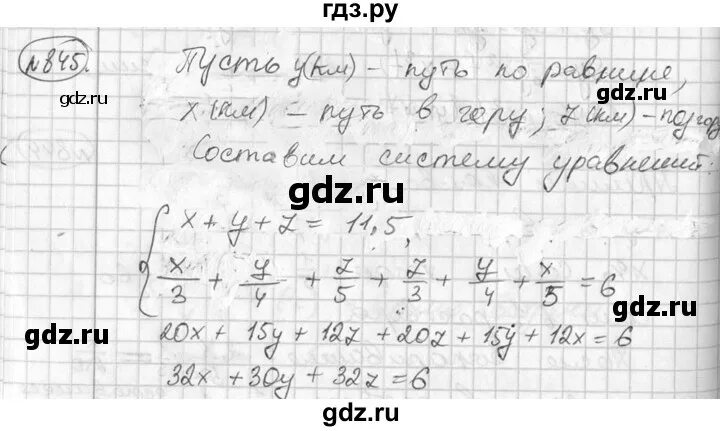 гдз.ру
№845.
Пусть y(км) – путь по равнине,
gdz.ru gdz.ru
x(км) – путь в гору; z(км) – под гору
Составим систему уравнений:
gdz.ru
{ x + y + z = 11,5,
x/3 + y/4 + z/5 + z/3 + y/4 + x/5 = 6
gdz.ru gdz.ru
20x + 15y + 12z + 20z + 15y + 12x = 6
32x + 30y + 32z = 6
gdz.ru